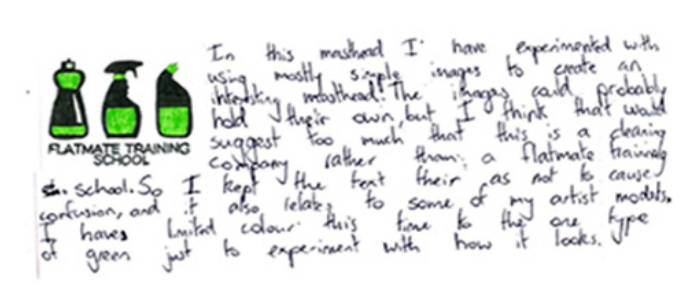 In this masthead I have experimented with
using mostly simple images to create an
intresting masthead. The images could probably
hold their own, but I think that would
suggest too much that this is a cleaning
company rather than a flatmate training
FLATMATE TRAINING
SCHOOL
school. So I kept the text their as not to cause
confusion, and it also relates to some of my artist models.
I haves limited colour this time to the one type
of green just to experiment with how it looks.